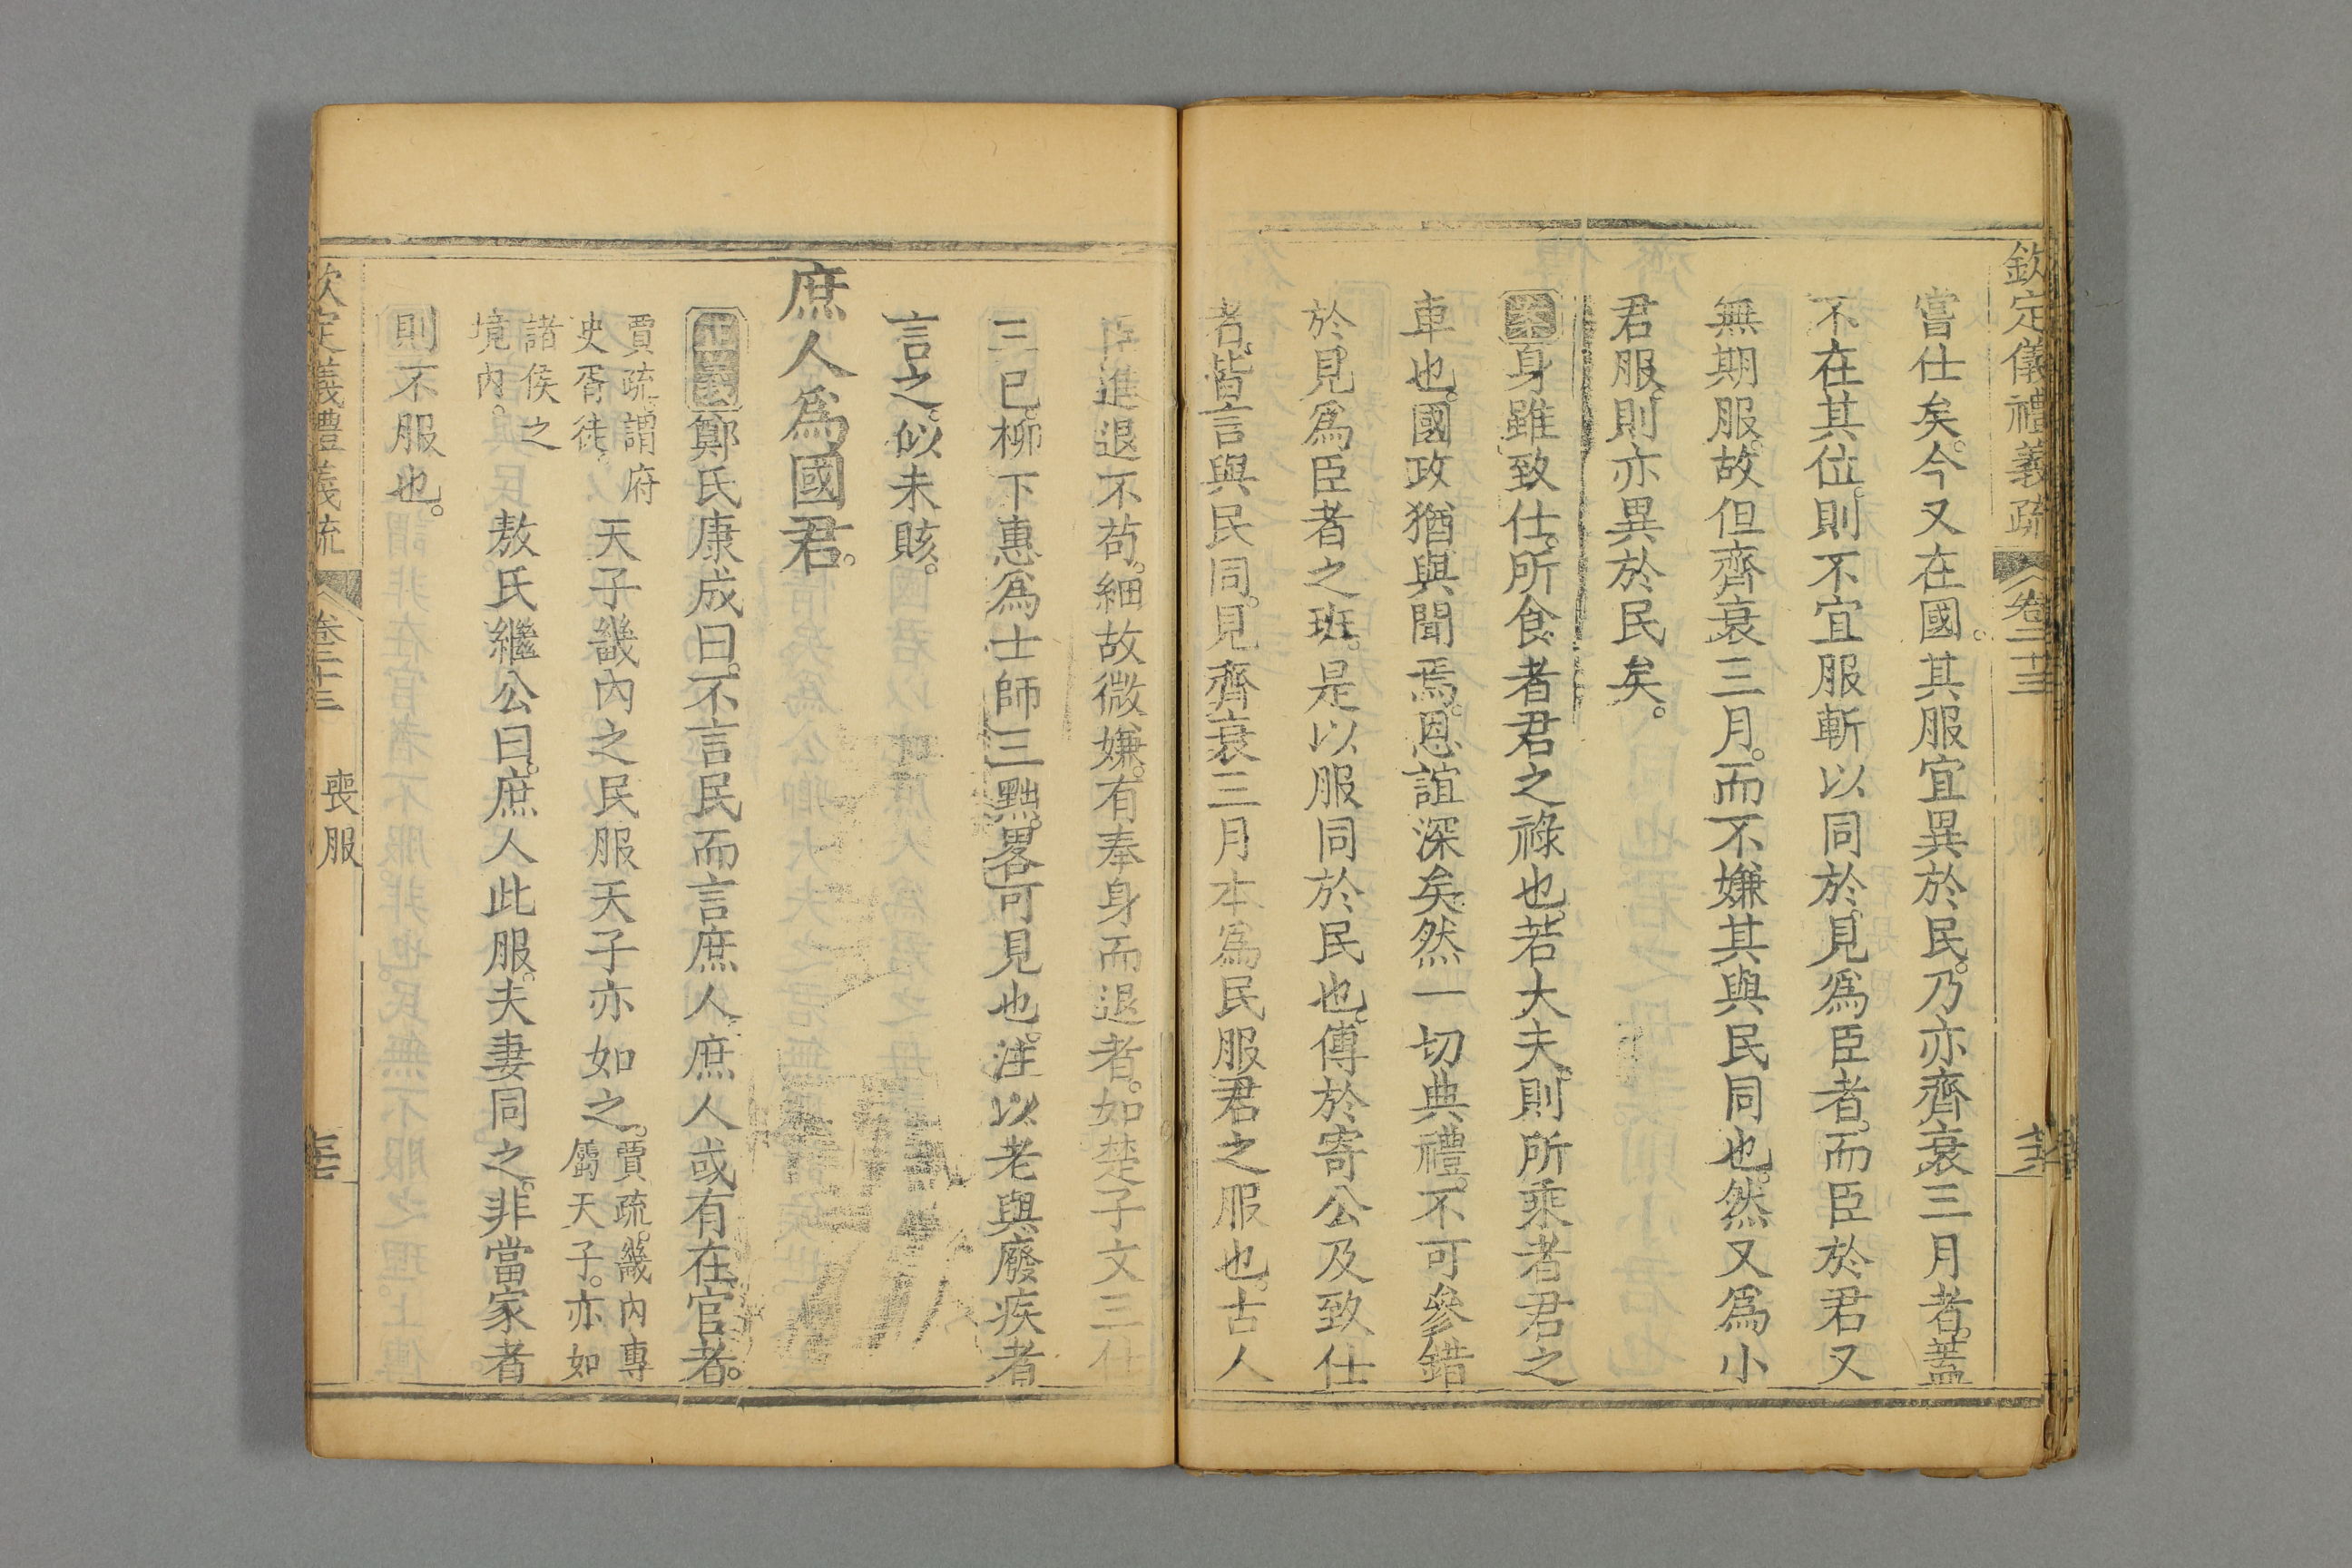 欽定儀禮義疏 卷二十三
嘗仕矣。今又在國。其服宜異於民。乃亦齊衰三月者。蓋
不在其位。則不宜服斬以同於見為臣者。而臣於君又
無期服。故但齊衰三月。而不嫌其與民同也。然又為小
君服。則亦異於民矣。
案身雖致仕。所食者君之祿也。若大夫。則所乘者君之
車也。國政猶與聞焉。恩誼深矣。然一切典禮。不可參錯
於見為臣者之班。是以服同於民也。傳於寄公及致仕
者。皆言與民同。見齊衰三月本為民服君之服也。古人
進退不苟。細故微嫌。有奉身而退者。如楚子文三仕
三已。柳下惠為士師三黜。畧可見也。注以老與廢疾者
言之。似未賅。
庶人為國君。
正義鄭氏康成曰。不言民而言庶人。庶人或有在官者。
賈疏。謂府
史胥徒。
天子畿內之民服天子亦如之。
賈疏。畿內專
屬天子。亦如
諸侯之
境內。
敖氏繼公曰。庶人此服。夫妻同之。非當家者
則不服也。
欽定儀禮義疏 卷二十三 喪服